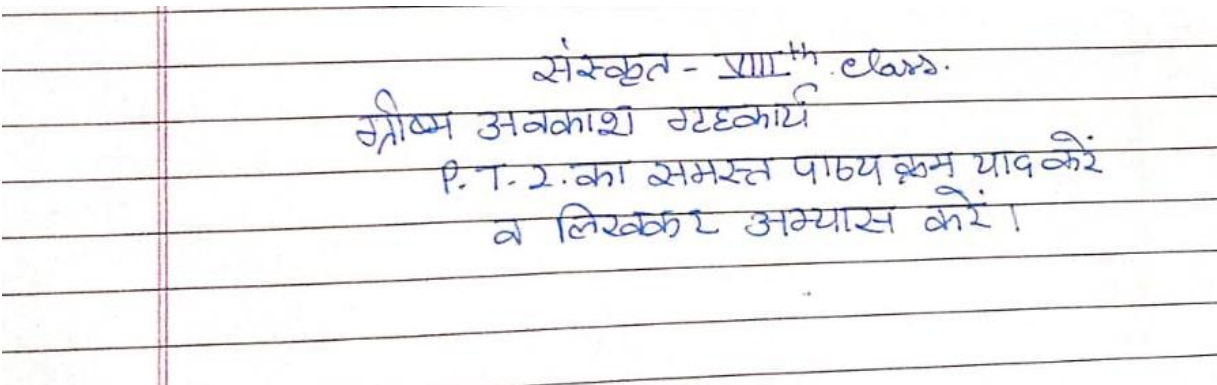 संस्कृत - VIII th class.
ग्रीष्म अवकाश गृहकार्य
P.T-2. का समस्त पाठ्य क्रम याद करें
व लिखकर अभ्यास करें।